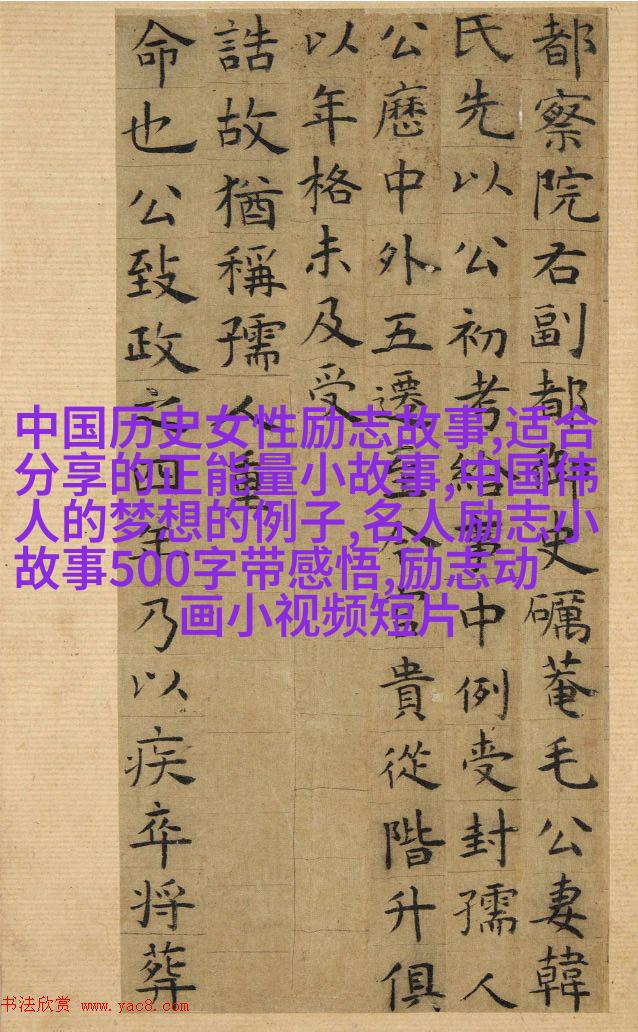 都察院右副都御史礪菴毛公妻韓
氏先以公初考給事中例受封孺人
公歷中外五遷至今官貴從階升俱
以年格未及受
誥故猶稱孺人重
命也公致政之四年乃以疾卒将葬
中国历史女性励志故事,适合
分享的正能量小故事,中国伟
人的梦想的例子,名人励志小
故事500字带感悟,励志动
画小视频短片
书法欣赏 www.yac8.com